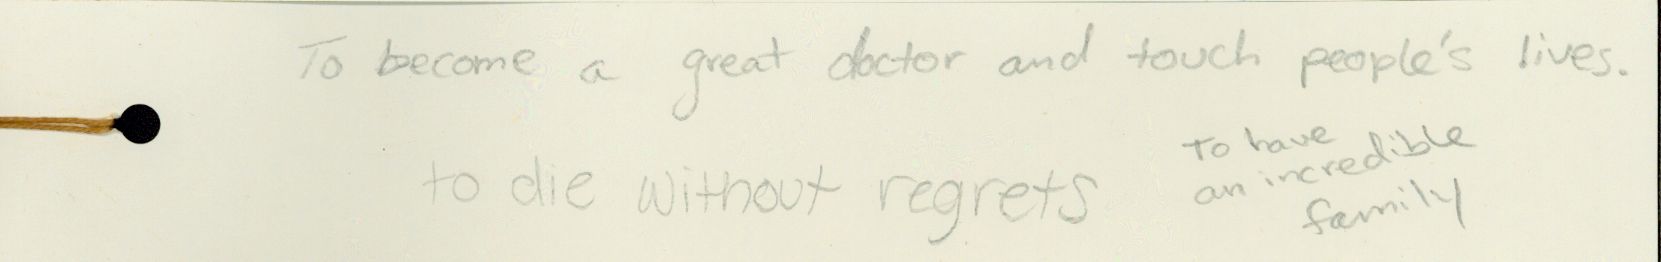 To become a great doctor and touch people's lives.
to die without regrets
To have
an incredible
family